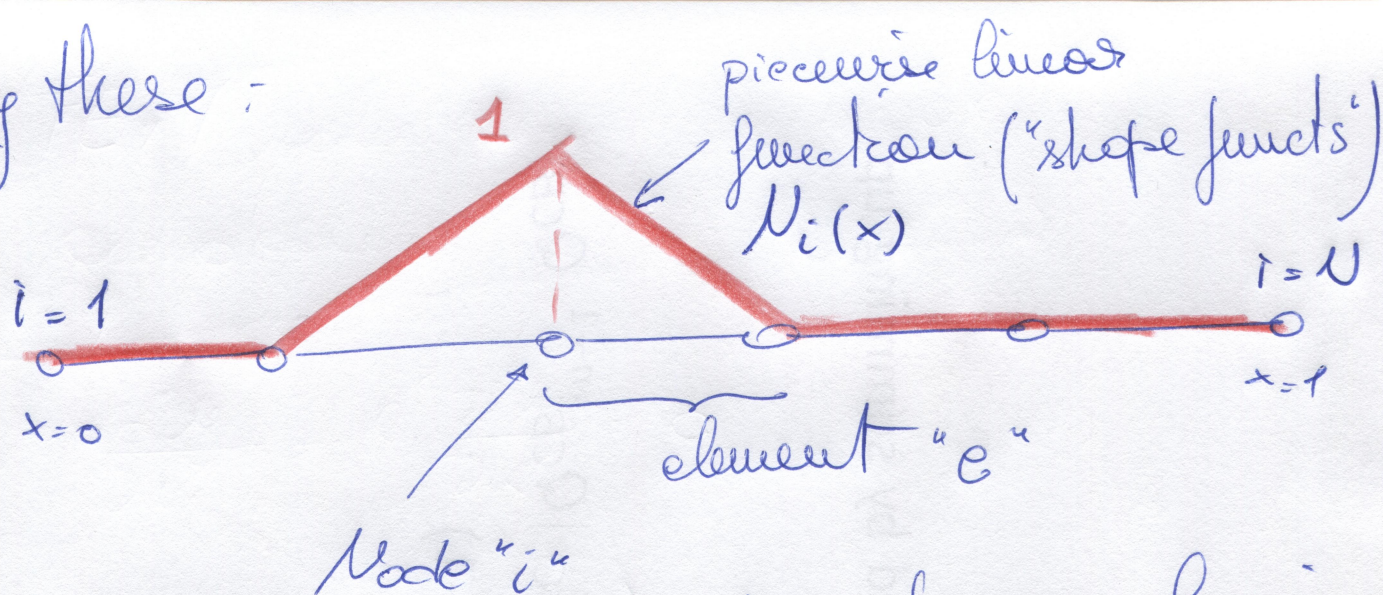 these :
piecewise linear
1
function ("shape functs")
N_i(x)
i = 1
i = N
x = 0
x = 1
element "e"
Node "i"